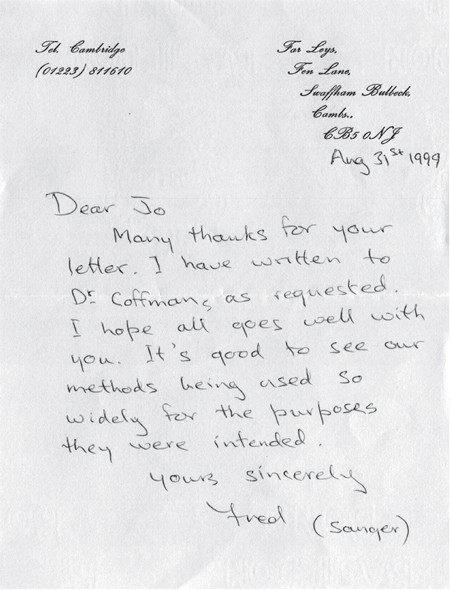 Tel. Cambridge
(01223) 811610
Far Leys,
Fen Lane,
Swaffham Bulbeck,
Cambs.,
CB5 0NJ
Aug 31st 1999
Dear Jo
Many thanks for your
letter. I have written to
Dr Coffman, as requested.
I hope all goes well with
you. It's good to see our
methods being used so
widely for the purposes
they were intended.
yours sincerely
Fred (Sanger)